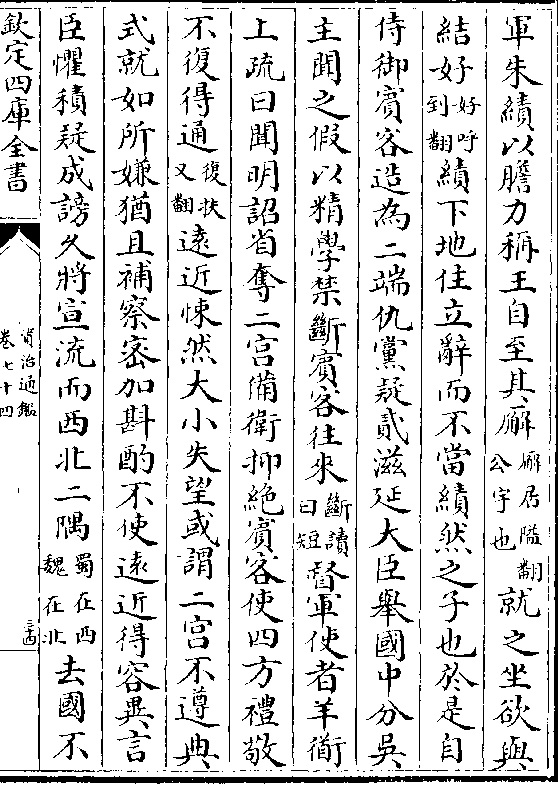 軍朱績以膽力稱王自至其廨廨居隘翻公宇也就之坐欲與
結好好呼到翻績下地住立辭而不當績然之子也於是自
侍御賓客造為二端仇黨疑貳滋延大臣舉國中分吳
主聞之假以精學禁斷賓客往來斷讀曰短督軍使者羊衜
上疏曰聞明詔省奪二宮備衛抑絶賓客使四方禮敬
不復得通復扶又翻遠近悚然大小失望或謂二宮不遵典
式就如所嫌猶且補察宻加斟酌不使遠近得容異言
臣懼積疑成謗久將宣流而西北二隅蜀在西魏在北去國不
欽定四庫全書
資治通鑑
卷七十四